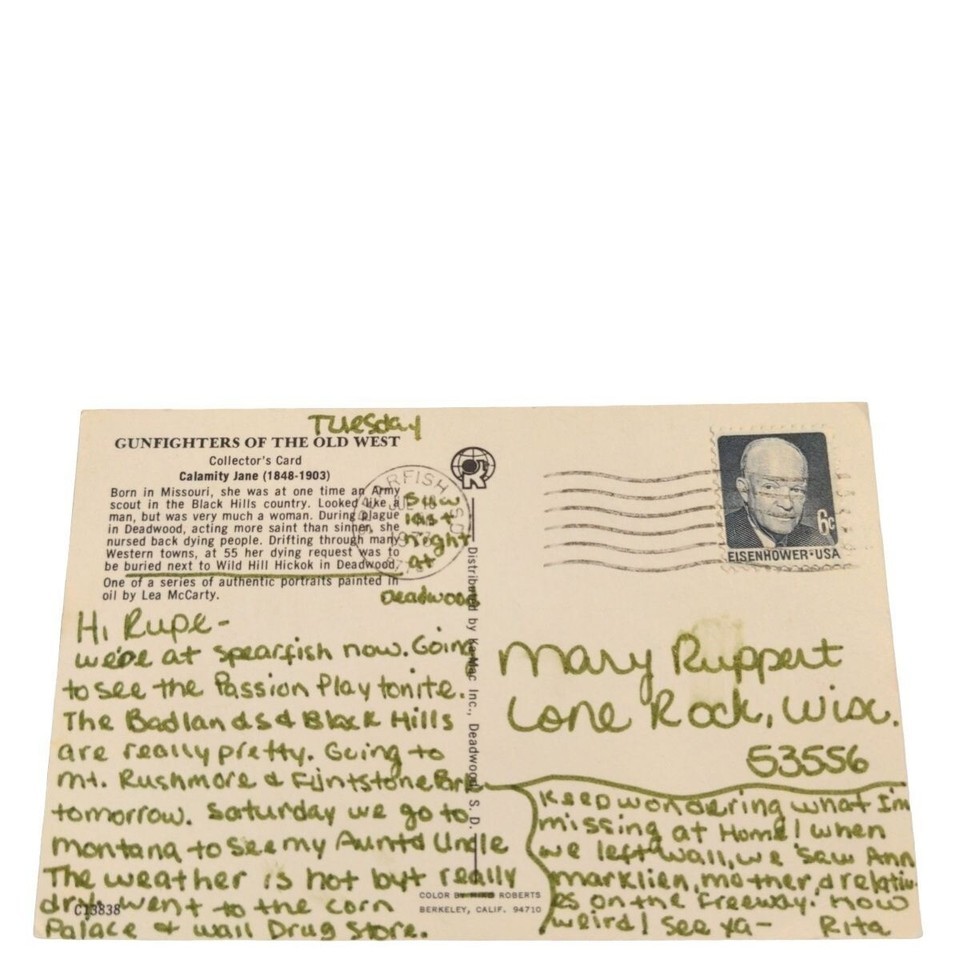 Tuesday
GUNFIGHTERS OF THE OLD WEST
Collector's Card
Calamity Jane (1848-1903)
Born in Missouri, she was at one time an Army
scout in the Black Hills country. Looked like a
man, but was very much a woman. During plague
in Deadwood, acting more saint than sinner, she
nursed back dying people. Drifting through many
Western towns, at 55 her dying request was to
be buried next to Wild Hill Hickok in Deadwood.
One of a series of authentic portraits painted in
oil by Lea McCarty.
Saw
last
night
at
Deadwood
Hi Rupe-
we're at spearfish now. Going
to see the Passion Play tonite.
The Badlands & Black Hills
are really pretty. Going to
Mt. Rushmore & Flintstone Park
tomorrow. Saturday we go to
montana to see my Aunt & Uncle
The weather is hot but really
dry. went to the corn
Palace & wall Drug Store.
C13838
Distributed by Inc., Deadwood, S. D.
COLOR BY MIKE ROBERTS
BERKELEY, CALIF. 94710
6c
EISENHOWER·USA
Mary Ruppert
Lone Rock, Wisc.
53556
Keep wondering what I'm
missing at Home! when
we left wall, we saw Ann
marklien, mother, & relativ-
es on the freeway. How
weird! See ya-
Rita